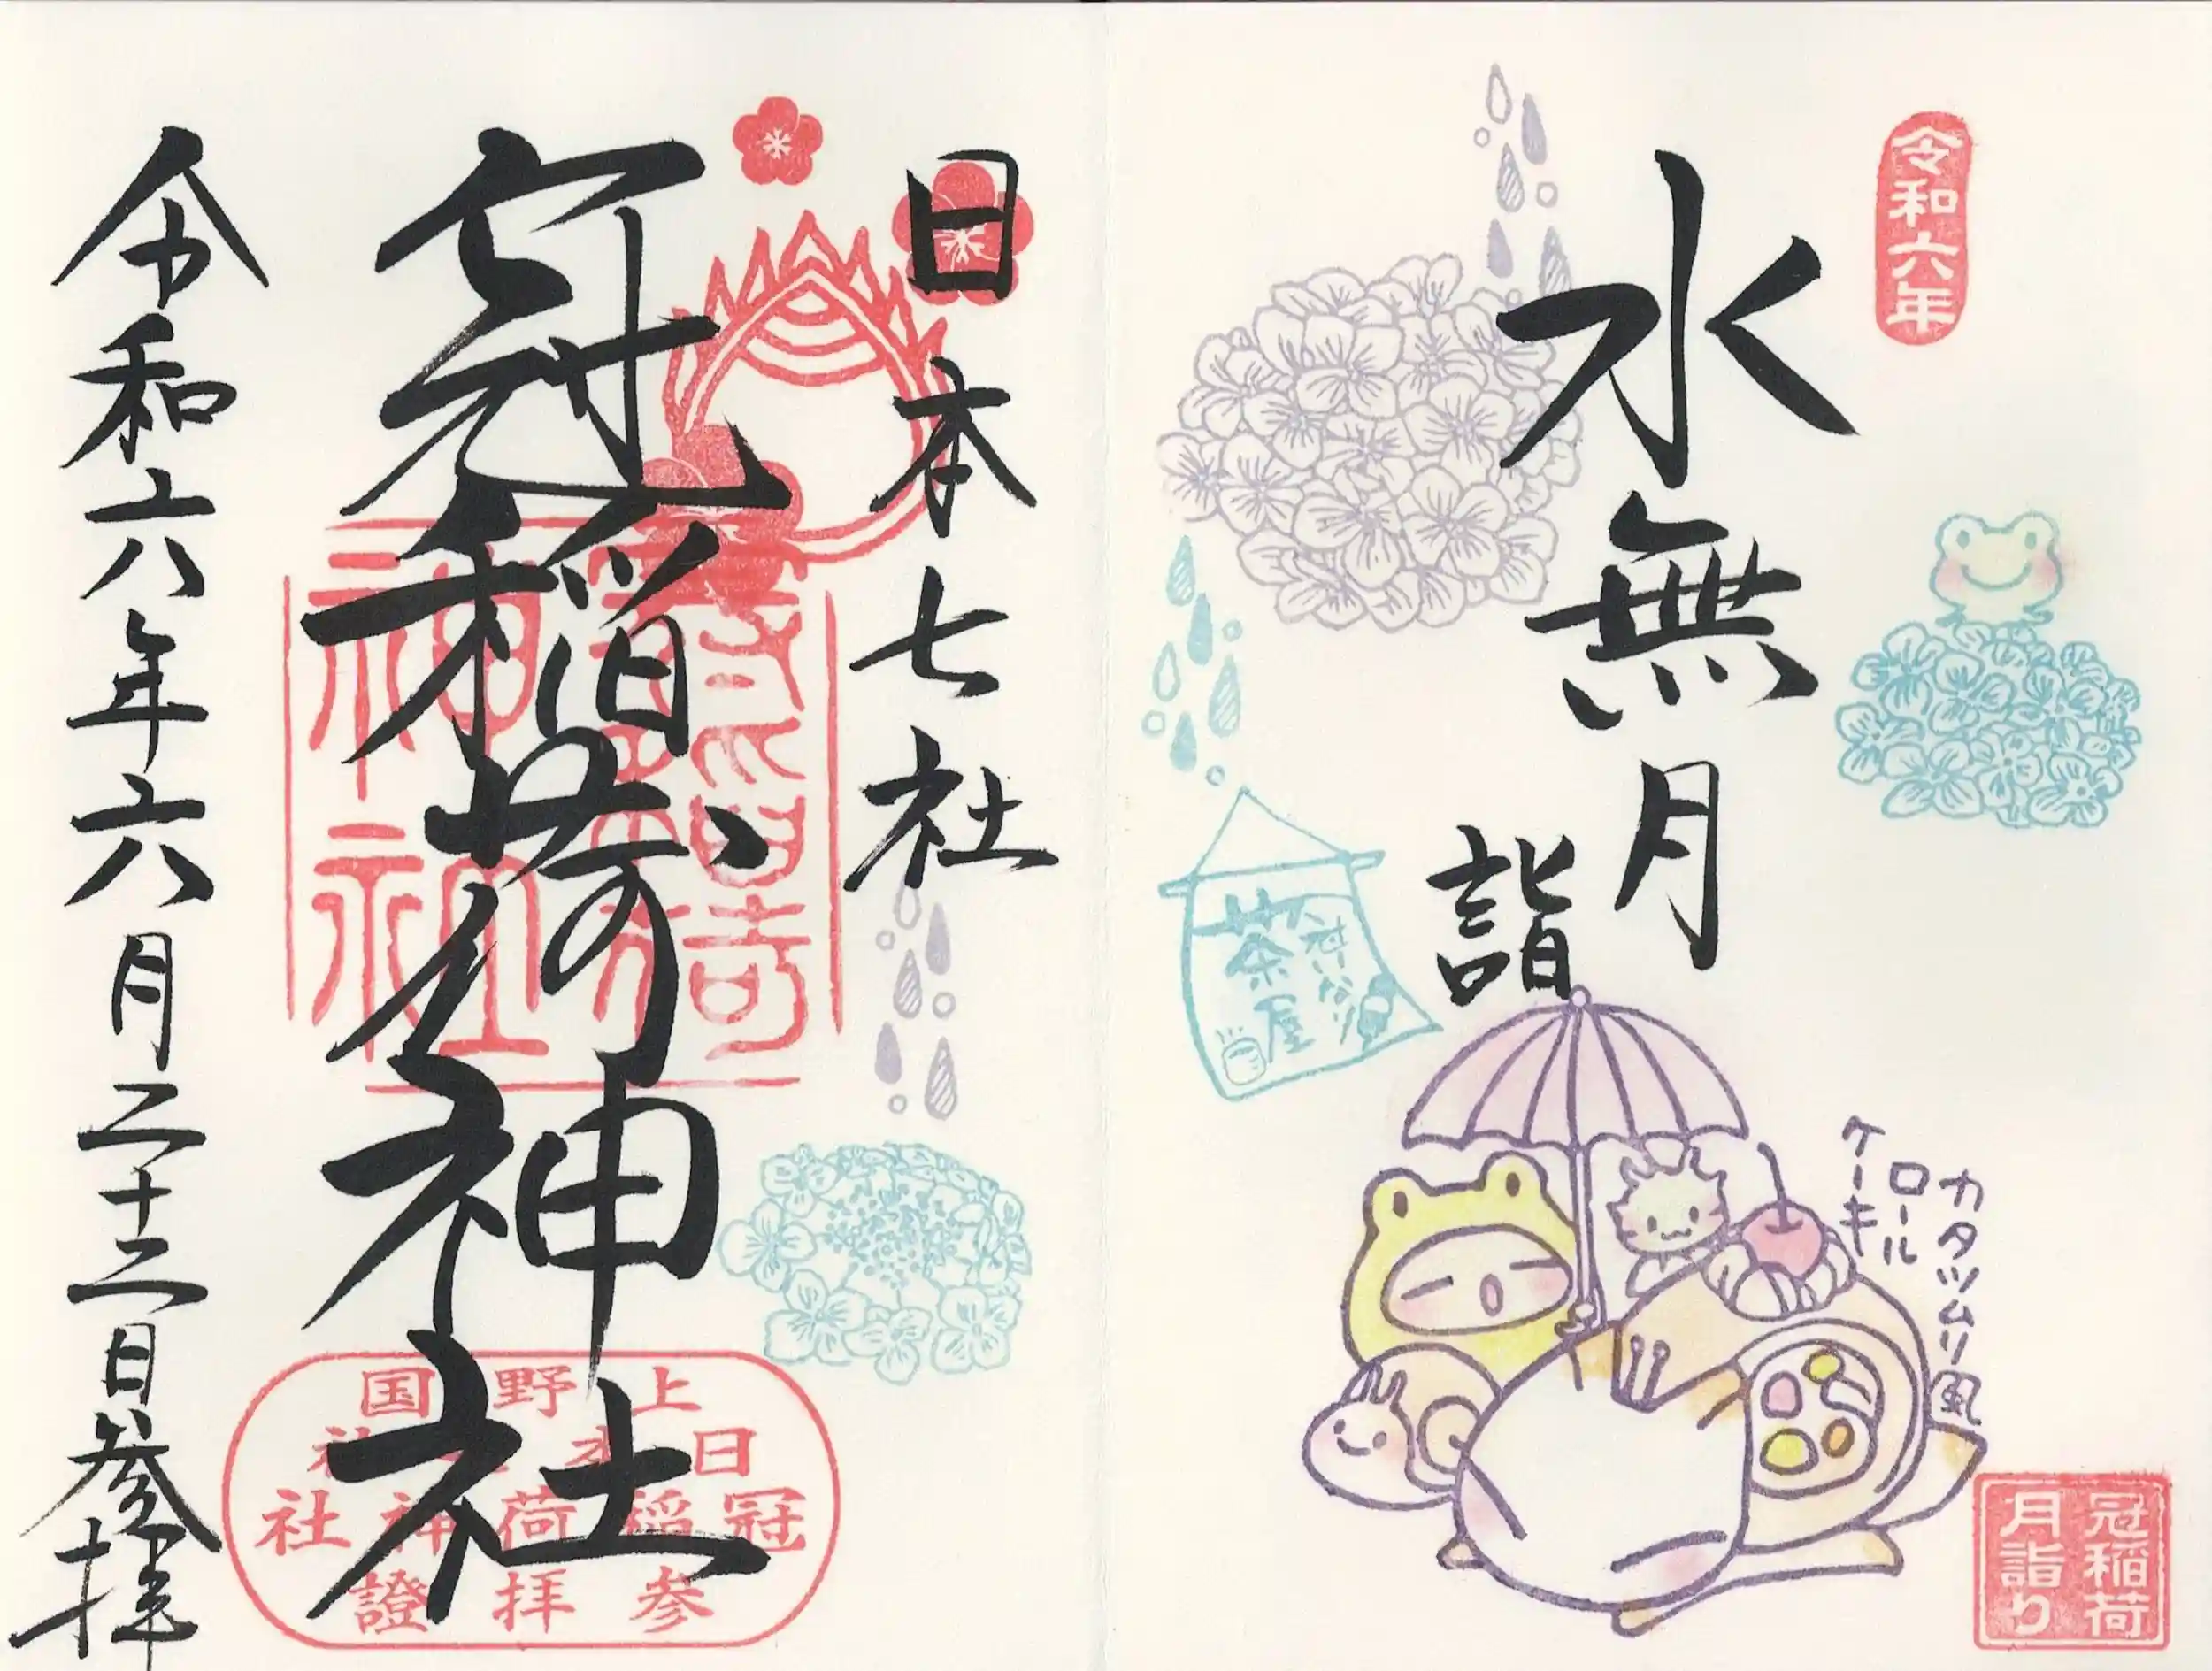 令和六年
水無月
詣
冠いなり
茶屋
カタツムリ風
ロール
ケーキ
冠稲荷
月詣り
日本七社
冠稲荷神社
神社
上野国
日本七社
冠稲荷神社
参拝證
令和六年六月二十二日参拝